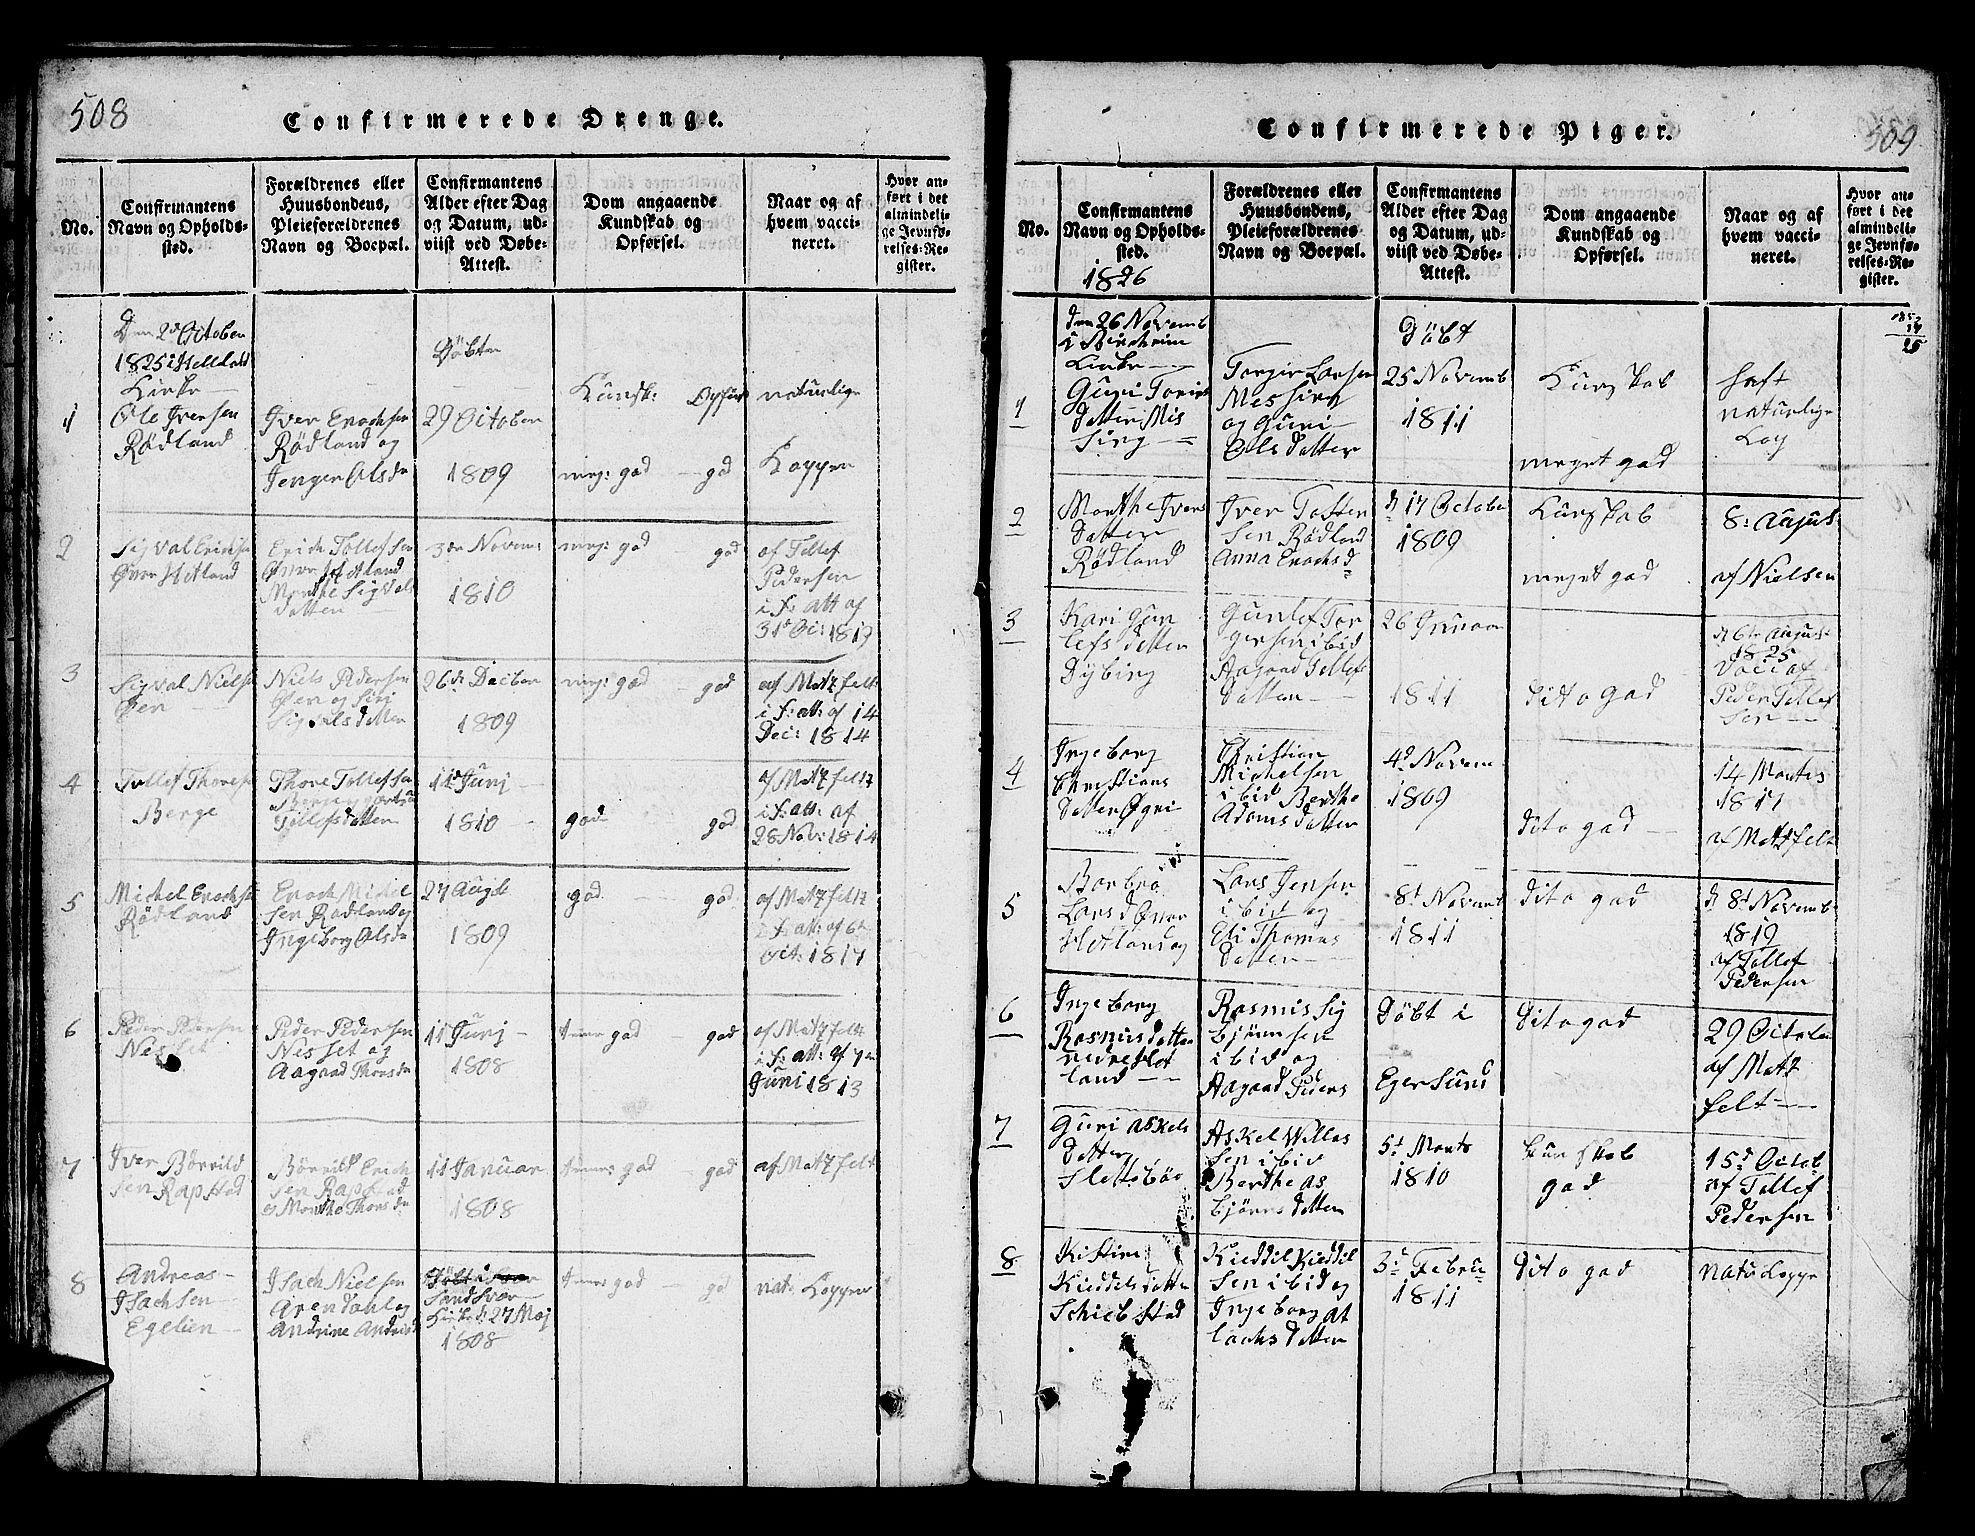 508
Confirmerede Drenge.
No.
Confirmantens
Navn og Opholds-
sted.
Forældrenes eller
Huusbondens,
Pleieforældrenes
Navn og Boepæl.
Confirmantens
Alder efter Dag
og Datum, ud-
viist ved Døbe-
Attest.
Dom angaaende
Kundskab og
Opførsel.
Naar og af
hvem vacci-
neret.
Hvor an-
ført i det
almindeli-
ge Jevnfø-
relses-Re-
gister.
Den 2d Octoben
1825 i Helleland
Kirke
1
Ole Iversen
Rödland
Iver Enochsen
Rödland og
Jenger Olsdn
Döbten
29 October
1809
Kundsk: Opförs
meg: god god
naturlige
Kopper
2
Sigval Erichsn
Övre Hetland
Erich Tollefsen
Övre Hetland
Marthe Sigvals
datter
3de Novem:
1810
meg: god god
af Tollef
Pedersen
i f: att af
31d Oc: 1819
3
Sigval Nielsn
Öen
Niels Pedersen
Öen og Siri
Sigvalsdatter
26de Decbr
1809
meg: god god
af Matzfelt
i f: att: af 14
Dec: 1814
4
Tollef Thorsn
Berge
Thore Tollefsen
Tollefsdatter
11d Junj
1810
god god
af Matzfelt
i f: att: af
28 Nov: 1814
5
Michel Enochsn
Rödland
Enoch Michel
sen Rödland og
Ingeborg Olsdn
27 Augst
1809
god god
af Matzfelt
i f: att: af 6te
Oct: 1817
6
Peder Pedersen
Nesset
Peder Pedersen
Nesset og
Aagaad Thorsdn
11 Junj
1808
god god
af Matzfelt
i f: att: af 7de
Juni 1813
7
Iver Börrild
sen Rapstad
Börrild Erich
sen Rapstad
og Marthe Thorsdn
11 Januar
1808
god god
af Matzfelt
8
Andreas
Isachsen
Egelien
Isach Nielsen
Arendahl og
Andrine Andreasd
Döbt i
Sandsvær
Kirke d: 27 Maj
1808
god god
nat: Kopper
Confirmerede Piger.
509
No.
Confirmantens
Navn og Opholds-
sted.
1826
Forældrenes eller
Huusbondens,
Pleieforældrenes
Navn og Boepæl.
Confirmantens
Alder efter Dag
og Datum, ud-
viist ved Døbe-
Attest.
Dom angaaende
Kundskab og
Opførsel.
Naar og af
hvem vacci-
neret.
Hvor an-
ført i det
almindeli-
ge Jevnfø-
relses-Re-
gister.
den 26 Novemb
i Bircheim
Kirke
1
Guri Torjers
datter Mis
sing
Torjer Larsen
Messing
og Guri
Olsdatter
Döbt
25 Novemb
1811
Kunskab
meget god
haft
naturlige
Kop
2
Marthe Ivers
datter
Rödland
Iver Tosten
sen Rödland
Anna Enochsd
d 17 October
1809
Kunskab
meget god
8: August
af Nielsen
3
Kari Gun
lefs datter
Dybing
Gunlef Tor
gersen ibid
Aagaad Tollefs
datter
26 Januar
1811
dito god
d 6te August
1825
Vacc af
Peder Tollef
sen
4
Ingeborg
Christians
datter Øgrei
Christian
Michelsen
ibid Berthe
Adamsdatter
4d Novem
1809
dito god
14 Martis
1817
af Matzfelt
5
Barbro
Larsd Övre
Hetland og
Lars Jensen
ibid og
Eli Thomas
datter
8d Novemb
1811
dito god
d 8d Novemb
1819
af Tollef
Pedersen
6
Ingeborg
Rasmusdatter
nedre Hot
land
Rasmis Sig
björnsen
ibid og
Aagaad Peders
Döbt i
Egersund
dito god
29 Octobr
af Matz
felt
7
Guri Askels
datter
Sletteböe
Askel Willas
sen ibid
Berthe As
björnsdatter
5d Marts
1810
Kunskab
god
15d Octob
af Tollef
Pedersen
8
Kistine
Kieddelsdatter
Schiebstad
Kieddil Kieddil
sen ibid og
Ingeborg At
lachs datter
3d Febru
1811
dito god
Natu Koppe